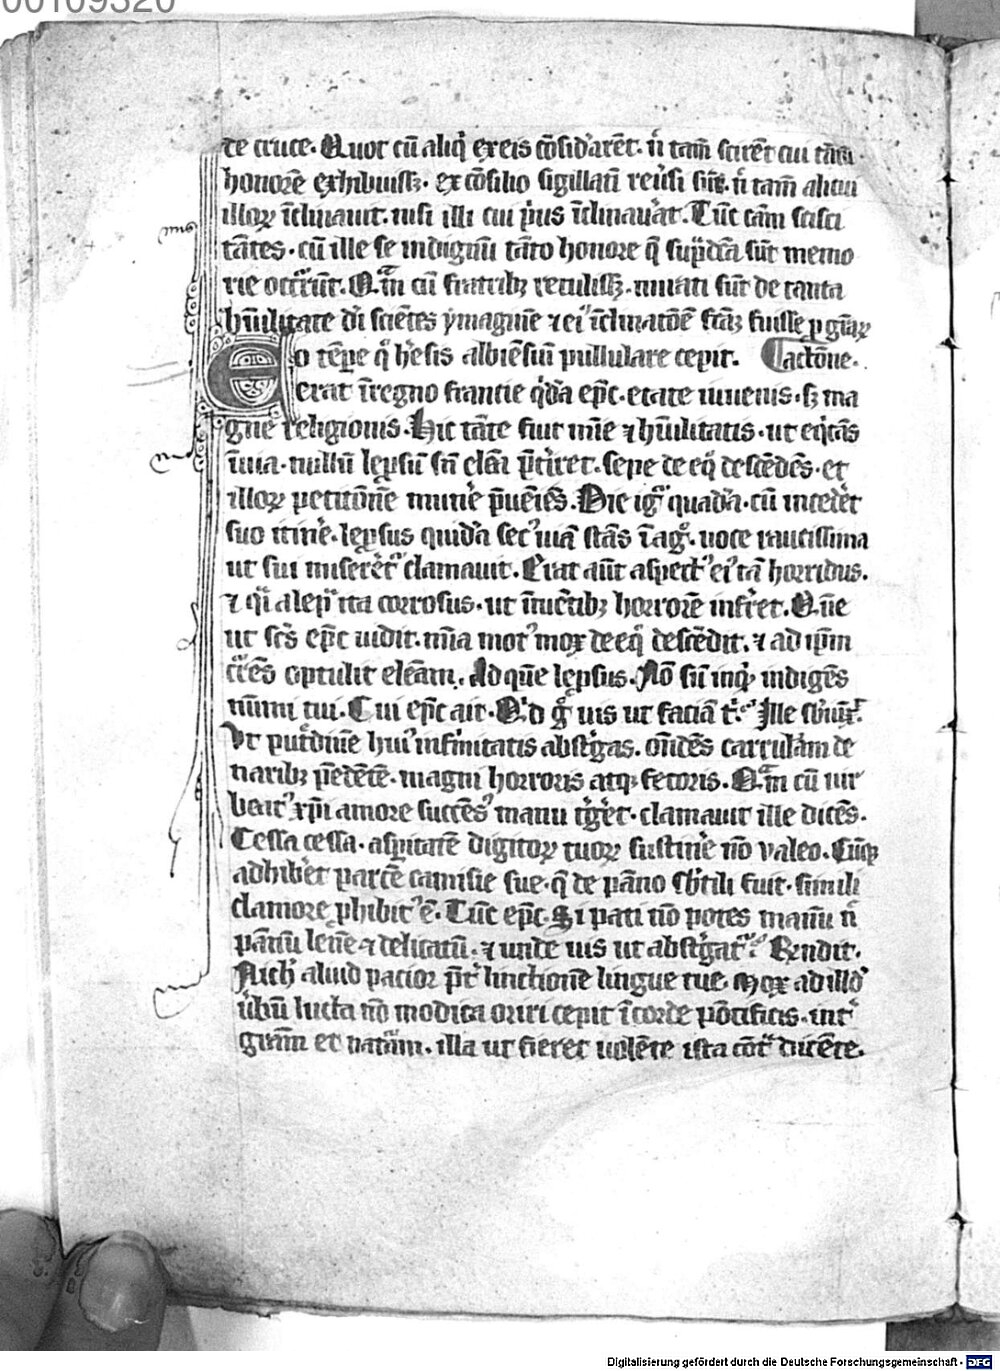 00109320
de cruce. Quot cū aliqͥ ex eis cōsid'arēt. ñ tam̄ scirēt cui tām
honorē exhibuissꝫ. ex cōsilio sigillati reūsi sūt. ñ tam alicui
illoꝝ īclinauit. nisi illi cui pͥus īclinauāt. Tūc eām scisci
tātes. cū ille se indignū tāto honore q̄ sup͛dc̄a sūt memo
rie occr̄rūt. Qm̄ cū fratribꝫ retulissꝫ. mirati sūt de tanta
hūilitate dn̄i sciētes ymagine ⁊ ei' īclinatōē factā fuisse ꝑ gr̄aꝝ
Eo tēpe q̄ h'esis albiēsiū pullulare cepit. Tactōne.
erat ī regno francie qͥdā ep̄c. etate iuuenis. sꝫ ma
gne religionis. Hic tāte fuit mīe ⁊ hūilitatis. ut eqͥtās
ī uia. nullū lep͛sū sn̄ elām p̄tiret. sepe de eqͦ descēdēs. et
illoꝝ petitōnē munē p̄ueiēs. Die igͥ quadā. cū incedēt
suo itinē. lep͛sus quidā sec' uiā stās ī agͦ. uoce raucissima
ut sui misereretͬ clamauit. Erat aūt aspect' ei' tā horridus.
⁊ qͣi a lep͛ ita corrosus. ut ītuētibꝫ horrorē infr̄et. Quē
ut sc̄s ep̄c uidit. mīa mot' mox de eqͦ descēdit. ⁊ ad ip̄m
cr̄ēs optulit elēām. Ad quē lep͛sus. Nō sū inqͥt indigēs
nūmi tui. Cui ep̄c ait. Qͥd gͦ uis ut faciā t'. Ille sbiūx.
Ut putͬdinē hui' infirmitatis abstͬgas. on̄dēs carrulam de
naribꝫ pēdētē. magni horroris atqꝫ fetoris. Qm̄ cū uir
beat' xp̄i amore succēs' manu tͬgēt. clamauit ille dicēs.
Cessa cessa. asp͛itatē digitoꝝ tuoꝝ sustinē nō valeo. Cūqꝫ
adhibēt partē camisie sue. q̄ de pāno sbtili fuit. simili
clamore ꝓhibit' ē. Tūc ep̄c. Si pati nō potes manū ñ
pānū lenē ⁊ delicatū. ⁊ unde uis ut abstͬgatͬ. Rendit.
Nich̄ aliud pacior p̄tͬ linctionē lingue tue. Mox ad illd'
ūbū lucta nō modica oriri cepit ī corde pōtificis. intͬ
gr̄am et natᷓm. illa ut fieret uolēte ista cōtͬ dicēte.
Digitalisierung gefördert durch die Deutsche Forschungsgemeinschaft - DFG